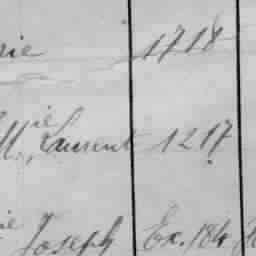 rie 1718
M.ie Laurent 1217
ie Joseph Ex. 184